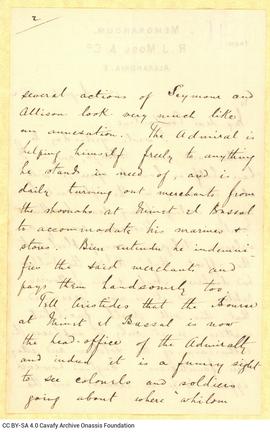 2
several actions of Seymour and
Allison look very much like
an annexation. The Admiral is
helping himself freely to anything
he stands in need of, and is
daily turning out merchants from
the shoonahs at Minet el Bassal
to accommodate his marines &
stores. Bien entendu he indemni-
fies the said merchants and
pays them handsomely too.
Tell Aristides that the Bourse
at Minet el Bassal is now
the head-office of the Admiralty
and indeed it is a funny sight
to see colonels and soldiers
going about where "whilom
MEMORANDUM.
R. J. MOSS & Co.
ALEXANDRIA.
CC BY-SA 4.0 Cavafy Archive Onassis Foundation